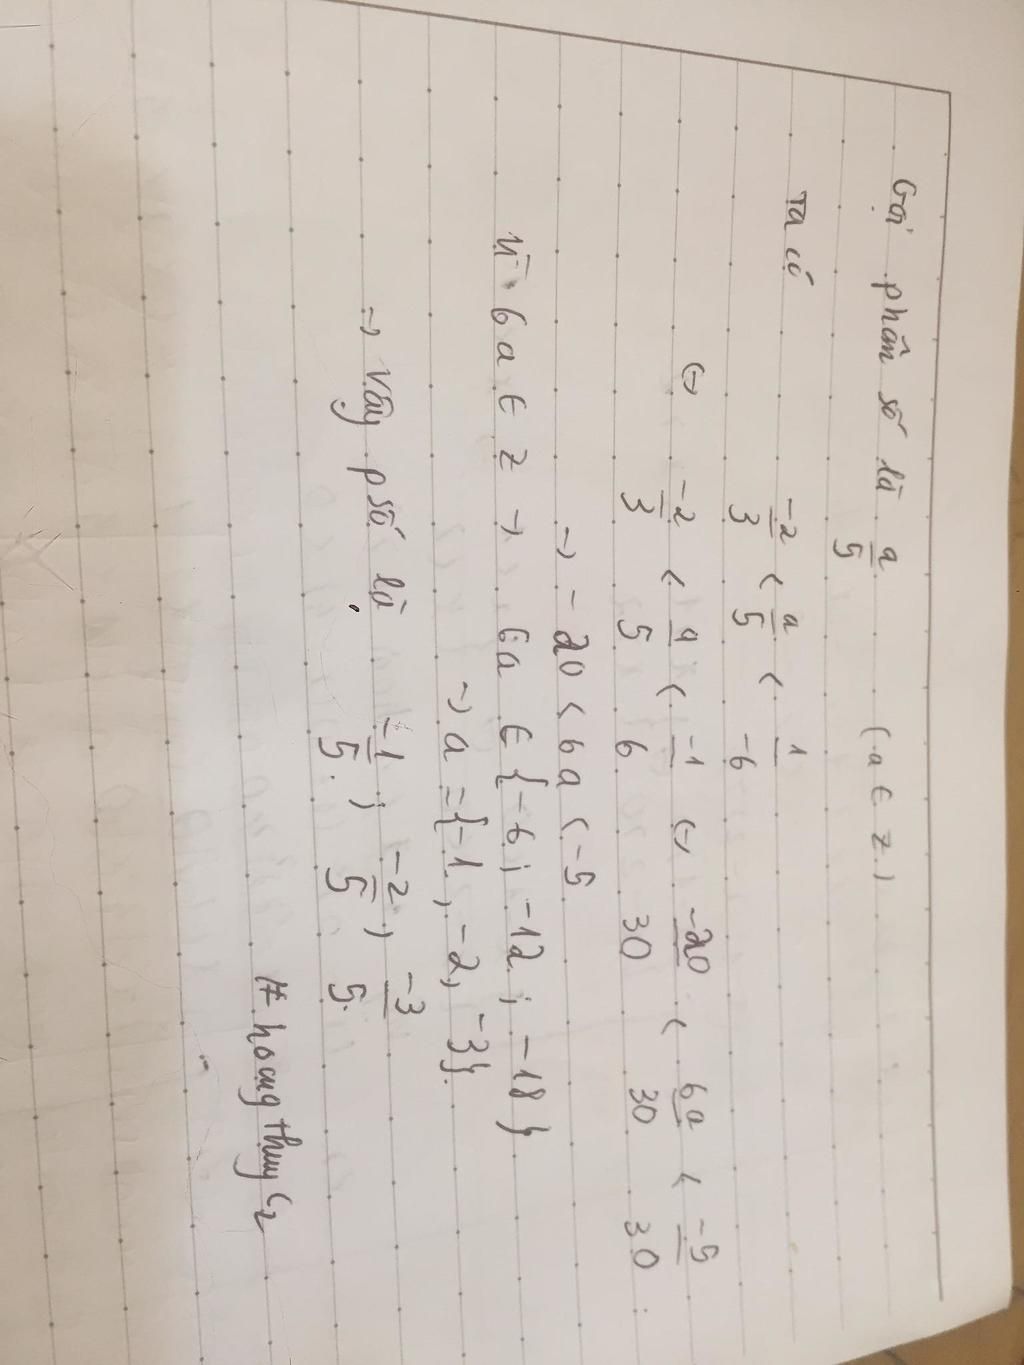 Gọi phân số là a/5 (a ∈ Z)
Ta có -2/3 < a/5 < 1/-6
↔ -2/3 < a/5 < -1/6 ↔ -20/30 < 6a/30 < -5/30
→ -20 < 6a < -5
Vì 6a ∈ Z → 6a ∈ {-6; -12; -18}
→ a = {-1, -2, -3}.
→ Vậy psố là -1/5; -2/5, -3/5.
# hoangthuyc2